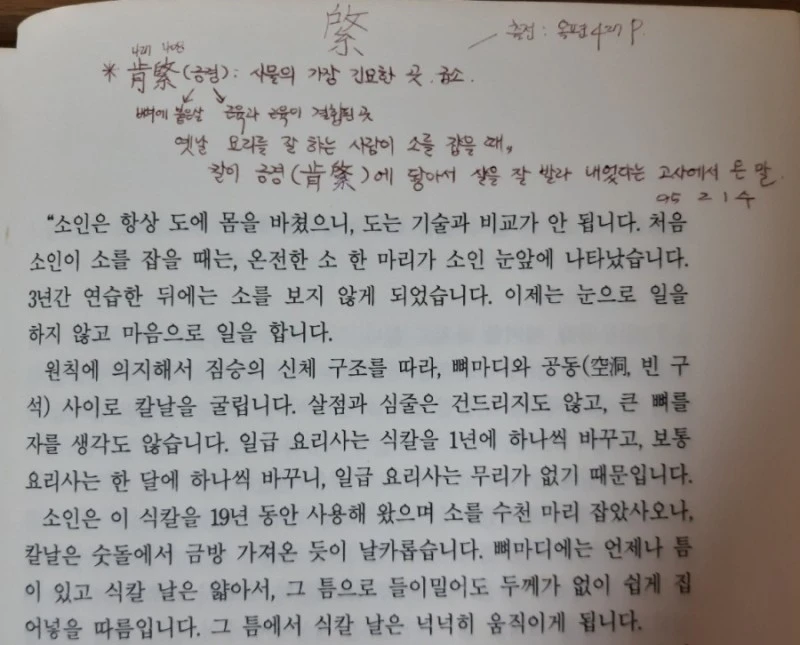 綮
출전: 옥편 427 P.
* 肯綮(긍경): 사물의 가장 긴요한 곳. 급소.
뼈에 붙은살 근육과 근육이 결합된 곳
옛날 요리를 잘 하는 사람이 소를 잡을 때,
칼이 긍경(肯綮)에 닿아서 살을 잘 발라 내었다는 고사에서 온 말.
95 2 1 수
“소인은 항상 도에 몸을 바쳤으니, 도는 기술과 비교가 안 됩니다. 처음
소인이 소를 잡을 때는, 온전한 소 한 마리가 소인 눈앞에 나타났습니다.
3년간 연습한 뒤에는 소를 보지 않게 되었습니다. 이제는 눈으로 일을
하지 않고 마음으로 일을 합니다.
원칙에 의지해서 짐승의 신체 구조를 따라, 뼈마디와 공동(空洞, 빈 구
석) 사이로 칼날을 굴립니다. 살점과 심줄은 건드리지도 않고, 큰 뼈를
자를 생각도 않습니다. 일급 요리사는 식칼을 1년에 하나씩 바꾸고, 보통
요리사는 한 달에 하나씩 바꾸니, 일급 요리사는 무리가 없기 때문입니다.
소인은 이 식칼을 19년 동안 사용해 왔으며 소를 수천 마리 잡았사오나,
칼날은 숫돌에서 금방 가져온 듯이 날카롭습니다. 뼈마디에는 언제나 틈
이 있고 식칼 날은 얇아서, 그 틈으로 들이밀어도 두께가 없이 쉽게 집
어넣을 따름입니다. 그 틈에서 식칼 날은 넉넉히 움직이게 됩니다.